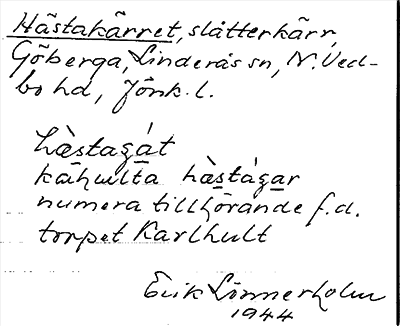 Hästakärret, slåtterkärr,
Göberga, Linderås sn, N. Ved-
bo hd, Jönk. l.
hæstagát
kähulta hæstágar
numera tillhörande f.d.
torpet Karlhult
Erik Lönnerholm
1944